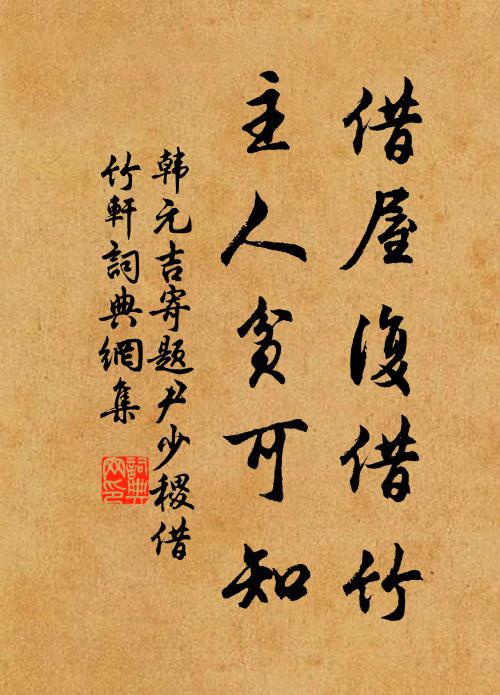 借屋復借竹
主人貧可知
韩元吉寄题尹少稷借
竹軒詞典網集
詞典
网印